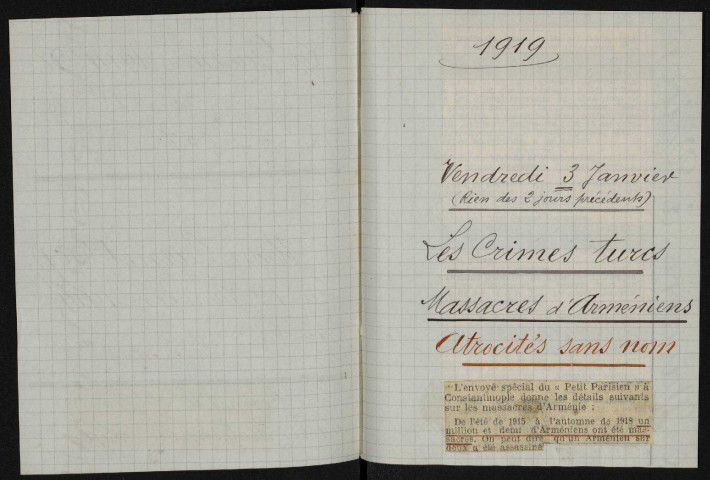 1919
Vendredi 3 Janvier
(Rien des 2 jours précédents)
Les Crimes turcs
Massacres d'Arméniens
Atrocités sans nom
L'envoyé spécial du « Petit Parisien » à
Constantinople donne les détails suivants
sur les massacres d'Arménie :
De l'été de 1915 à l'automne de 1918 un
million et demi d'Arméniens ont été mas-
sacrés. On peut dire qu'un Arménien sur
deux a été assassiné